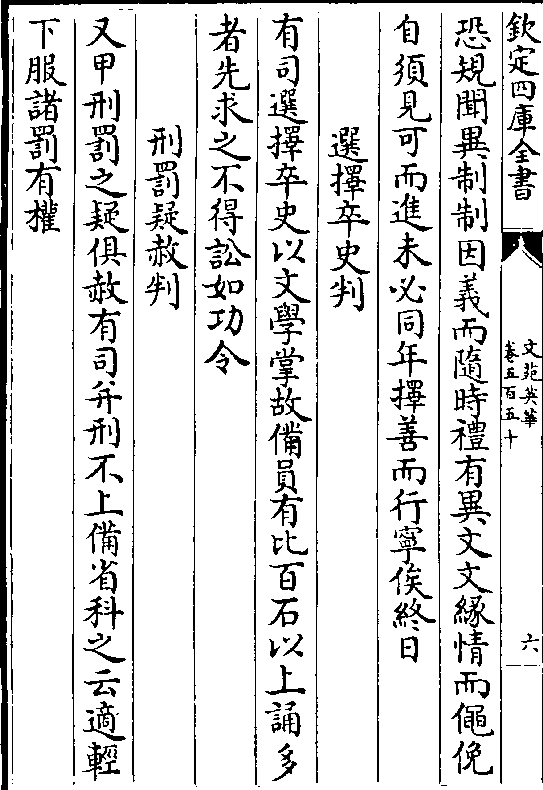 欽定四庫全書
文苑英華
卷五百五十
六
恐規聞異制制因義而隨時禮有異文文緣情而僶俛
自須見可而進未必同年擇善而行寧俟終日
選擇卒史判
有司選擇卒史以文學掌故備員有比百石以上誦多
者先求之不得訟如功令
刑罰疑赦判
又甲刑罰之疑俱赦有司弁刑不上備省科之云適輕
下服諸罰有權